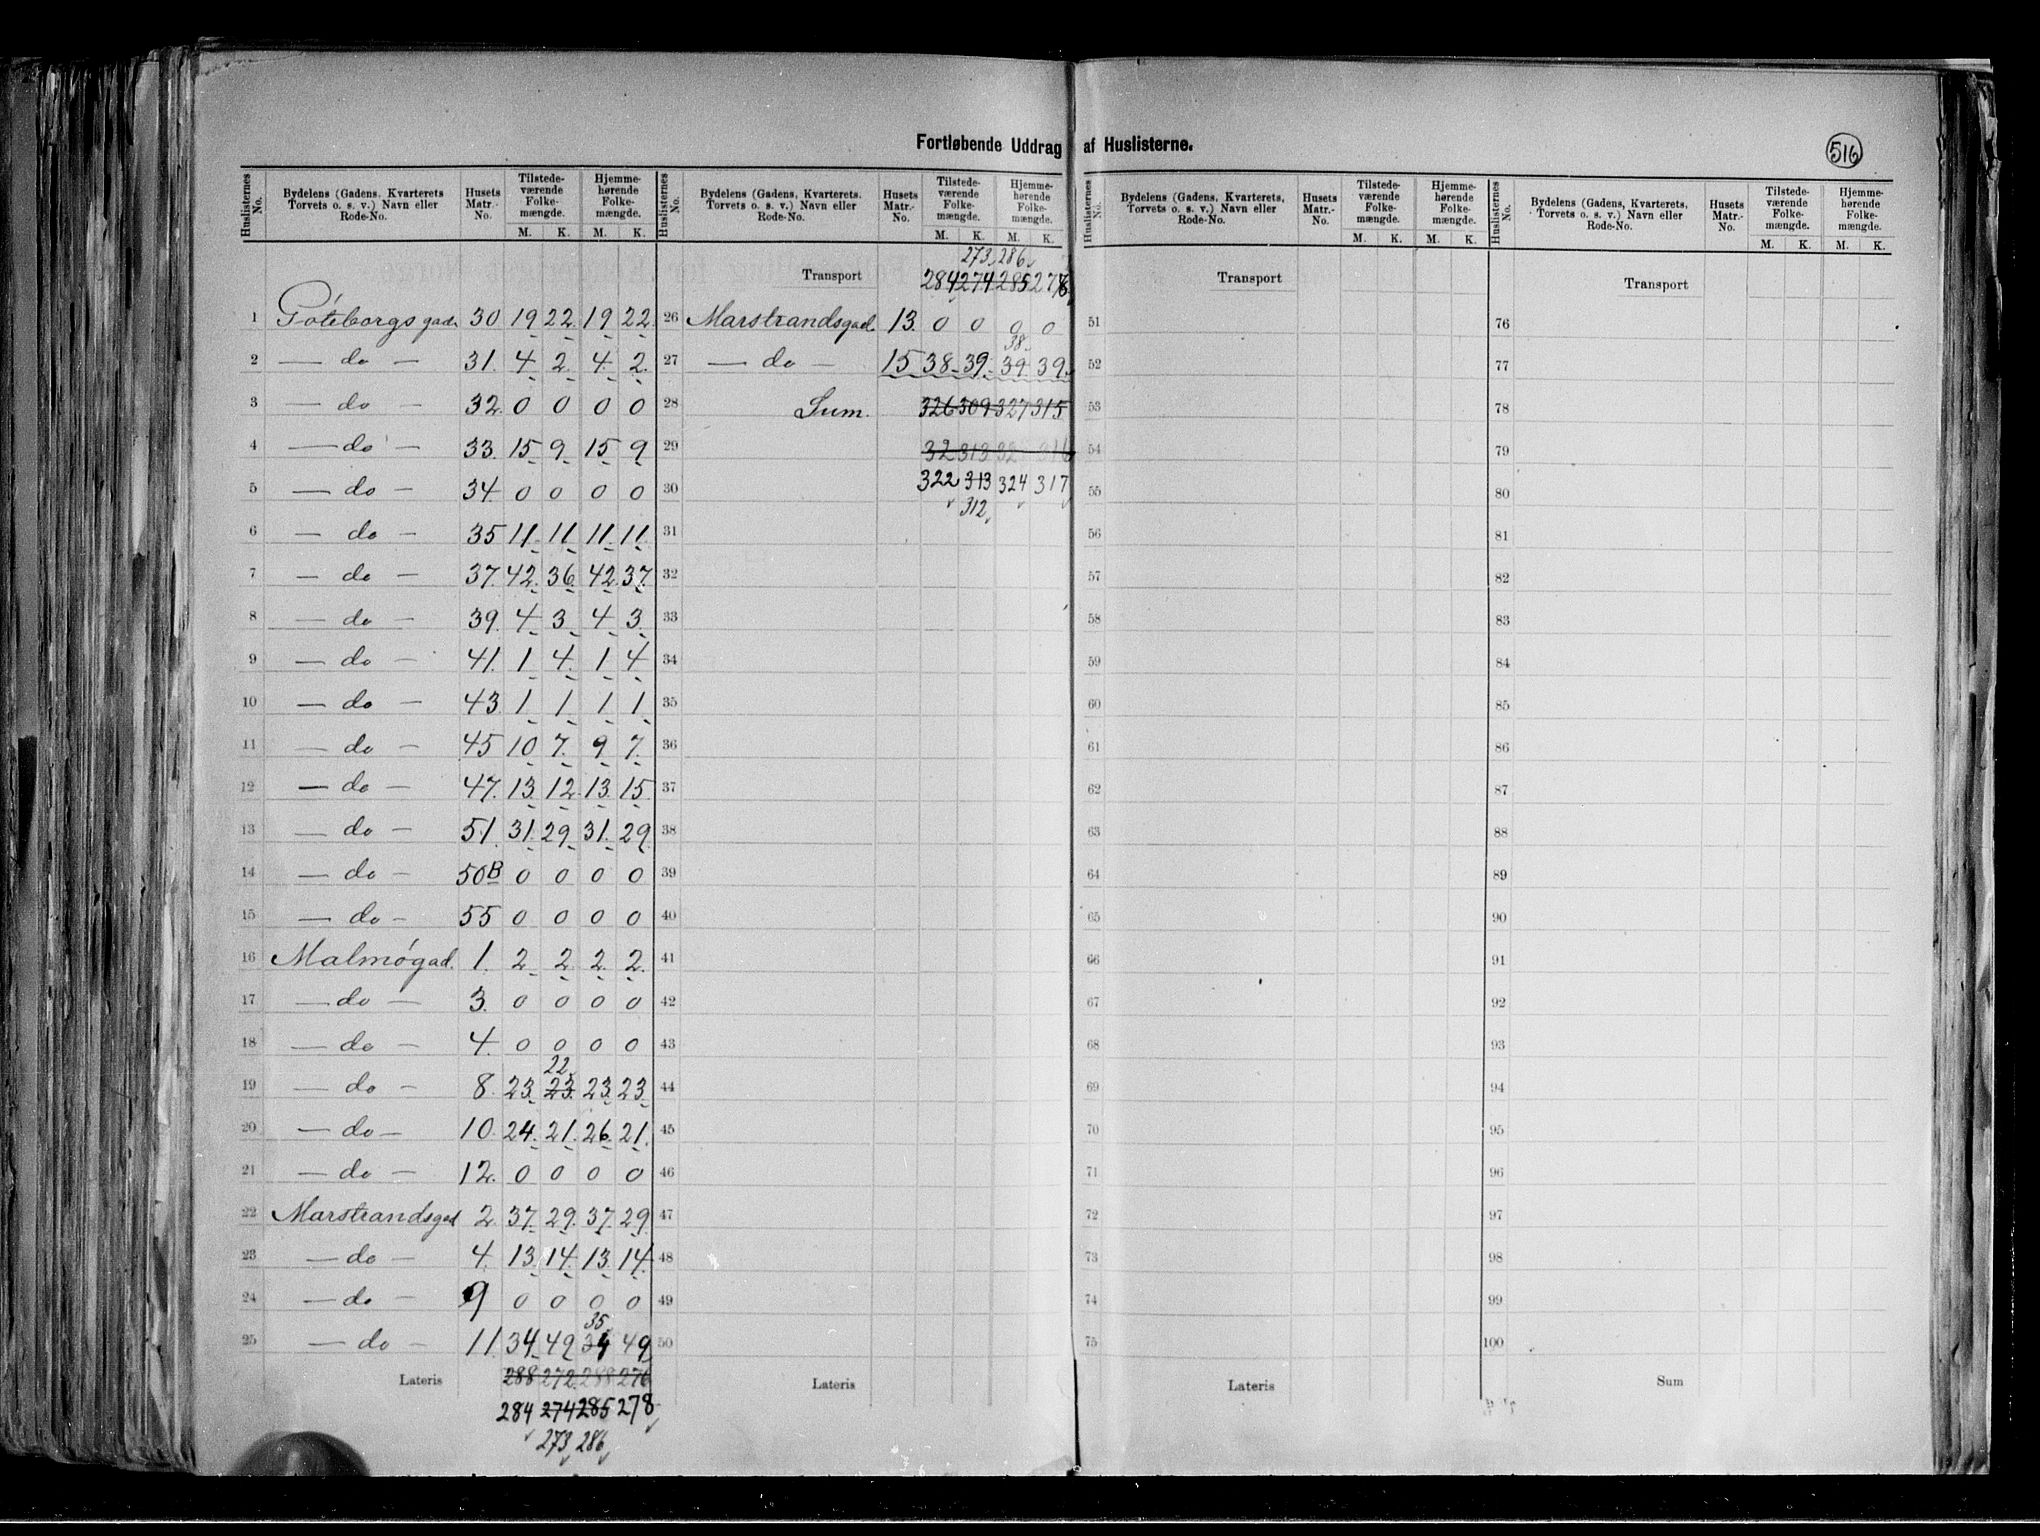 Fortløbende Uddrag af Huslisterne.
516
Huslisternes No. | Bydelens (Gadens, Kvarterets Torvets o. s. v.) Navn eller Rode-No. | Husets Matr.-No. | Tilstedeværende Folkemængde. M. K. | Hjemmehørende Folkemængde. M. K.
1 Góteborgsgad. 30 19 22 19 22
2 — do — 31. 4 2 4 2
3 — do — 32 0 0 0 0
4 — do — 33 15 9 15 9
5 — do — 34 0 0 0 0
6 — do — 35 11 11 11 11
7 — do — 37. 42. 36. 42. 37.
8 — do — 39. 4 3 4 3
9 — do — 41. 1 4 1 4
10 — do — 43 1 1 1 1
11 — do — 45 10 7. 9 7.
12 — do — 47. 13 12 13 15
13 — do — 51. 31. 29 31. 29
14 — do — 50B 0 0 0 0
15 — do — 55 0 0 0 0
16 Malmógad. 1. 2 2 2 2
17 — do — 3. 0 0 0 0
18 — do — 4. 0 0 0 0
22
19 — do — 8. 23. 23. 23. 23.
20 — do — 10. 24. 21. 26. 21.
21 — do — 12. 0 0 0 0
22 Marstrandsgad 2 37. 29. 37. 29
23 — do — 4. 13 14. 13. 14.
24 — do — 9 0 0 0 0
35
25 — do — 11. 34 49 34 49
Lateris 288 272 288 276
284 274 285 278
273 286
Huslisternes No. | Bydelens (Gadens, Kvarterets. Torvets o. s. v.) Navn eller Rode-No. | Husets Matr.-No. | Tilstedeværende Folkemængde. M. K. | Hjemmehørende Folkemængde. M. K.
273 286
Transport 284 274 285 278
26 Marstrandsgad. 13. 0 0 0 0
38
27 — do — 15 38 39 39 39
28 Sum. 326 309 327 315
29
30 322 313 324 317
312
31
32
33
34
35
36
37
38
39
40
41
42
43
44
45
46
47
48
49
50
Lateris
Huslisternes No. | Bydelens (Gadens, Kvarterets, Torvets o. s. v.) Navn eller Rode-No. | Husets Matr.-No. | Tilstedeværende Folkemængde. M. K. | Hjemmehørende Folkemængde. M. K.
Transport
51
52
53
54
55
56
57
58
59
60
61
62
63
64
65
66
67
68
69
70
71
72
73
74
75
Lateris
Huslisternes No. | Bydelens (Gadens, Kvarterets, Torvets o. s. v.) Navn eller Rode-No. | Husets Matr.-No. | Tilstedeværende Folkemængde. M. K. | Hjemmehørende Folkemængde. M. K.
Transport
76
77
78
79
80
81
82
83
84
85
86
87
88
89
90
91
92
93
94
95
96
97
98
99
100
Sum